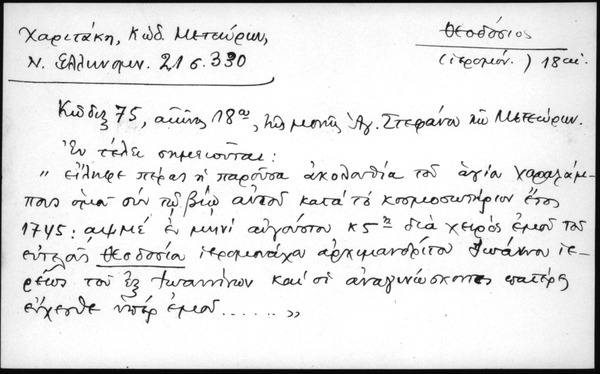 Χαριτάκη, Κώδ. Μετεώρων,
Ν. Ελληνομν. 21 σ. 330
Θεοδόσιος
(ιερομόν.) 18 αι.
Κώδιξ 75, αιῶνος 18ου, τῆς μονῆς Ἁγ. Στεφάνου τῶν Μετεώρων.
Ἐν τέλει σημειοῦται:
„ εἴληφε πέρας ἡ παροῦσα ἀκολουθία τοῦ ἁγίου Χαραλάμ-
πους ἅμα σύν τῷ βίῳ αὐτοῦ κατά τό κοσμοσωτήριον ἔτος
1745: ἐν μηνί αὐγούστου κ5η διά χειρός ἐμοῦ τοῦ
εὐτελοῦς Θεοδοσίου ἱερομονάχου ἀρχιμανδρίτου Ἰωάννου ἱε-
ρέως τοῦ ἐξ Ἰωαννίνων καί οἱ ἀναγινώσκοντες πατέρες
εὔχεσθε ὑπέρ ἐμοῦ ...... „